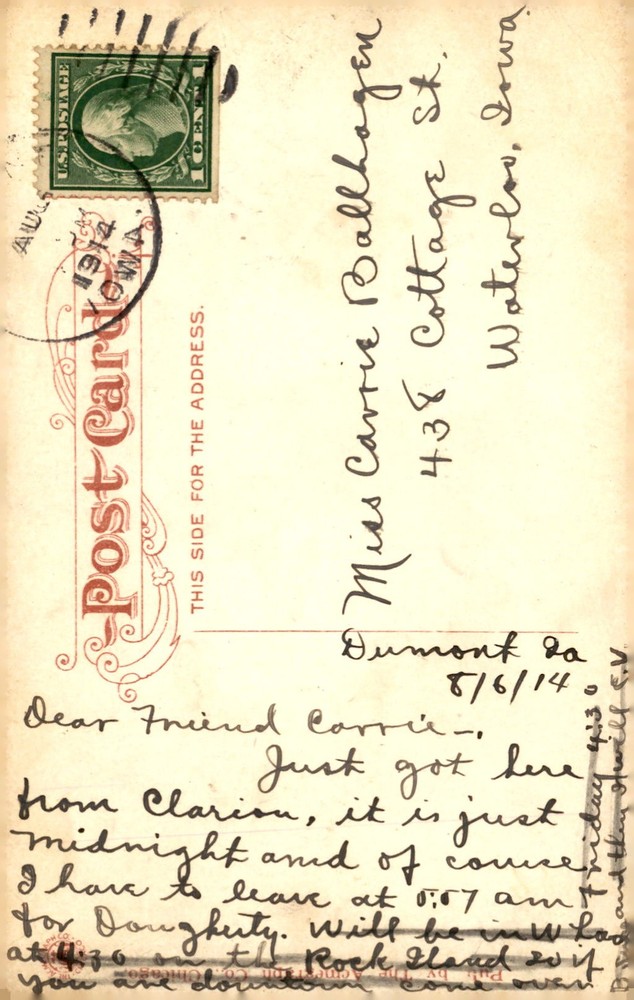 U.S. POSTAGE
1 CENT 1
AUG
1914
IOWA.
Post Card
THIS SIDE FOR THE ADDRESS.
Miss Carrie Ballhagen
438 Cottage St.
Waterloo, Iowa
Dumont Ia
8/6/14
Dear Friend Carrie—.
Just got here
from Clarion, it is just
midnight and of course
I have to leave at 5:07 am
for Dougherty. Will be in W'loo
at 4:30 on the Rock Island so if
you are downtown come over
Friday 4:30
and then
E.V.
Pub. by The Acmegraph Co., Chicago.